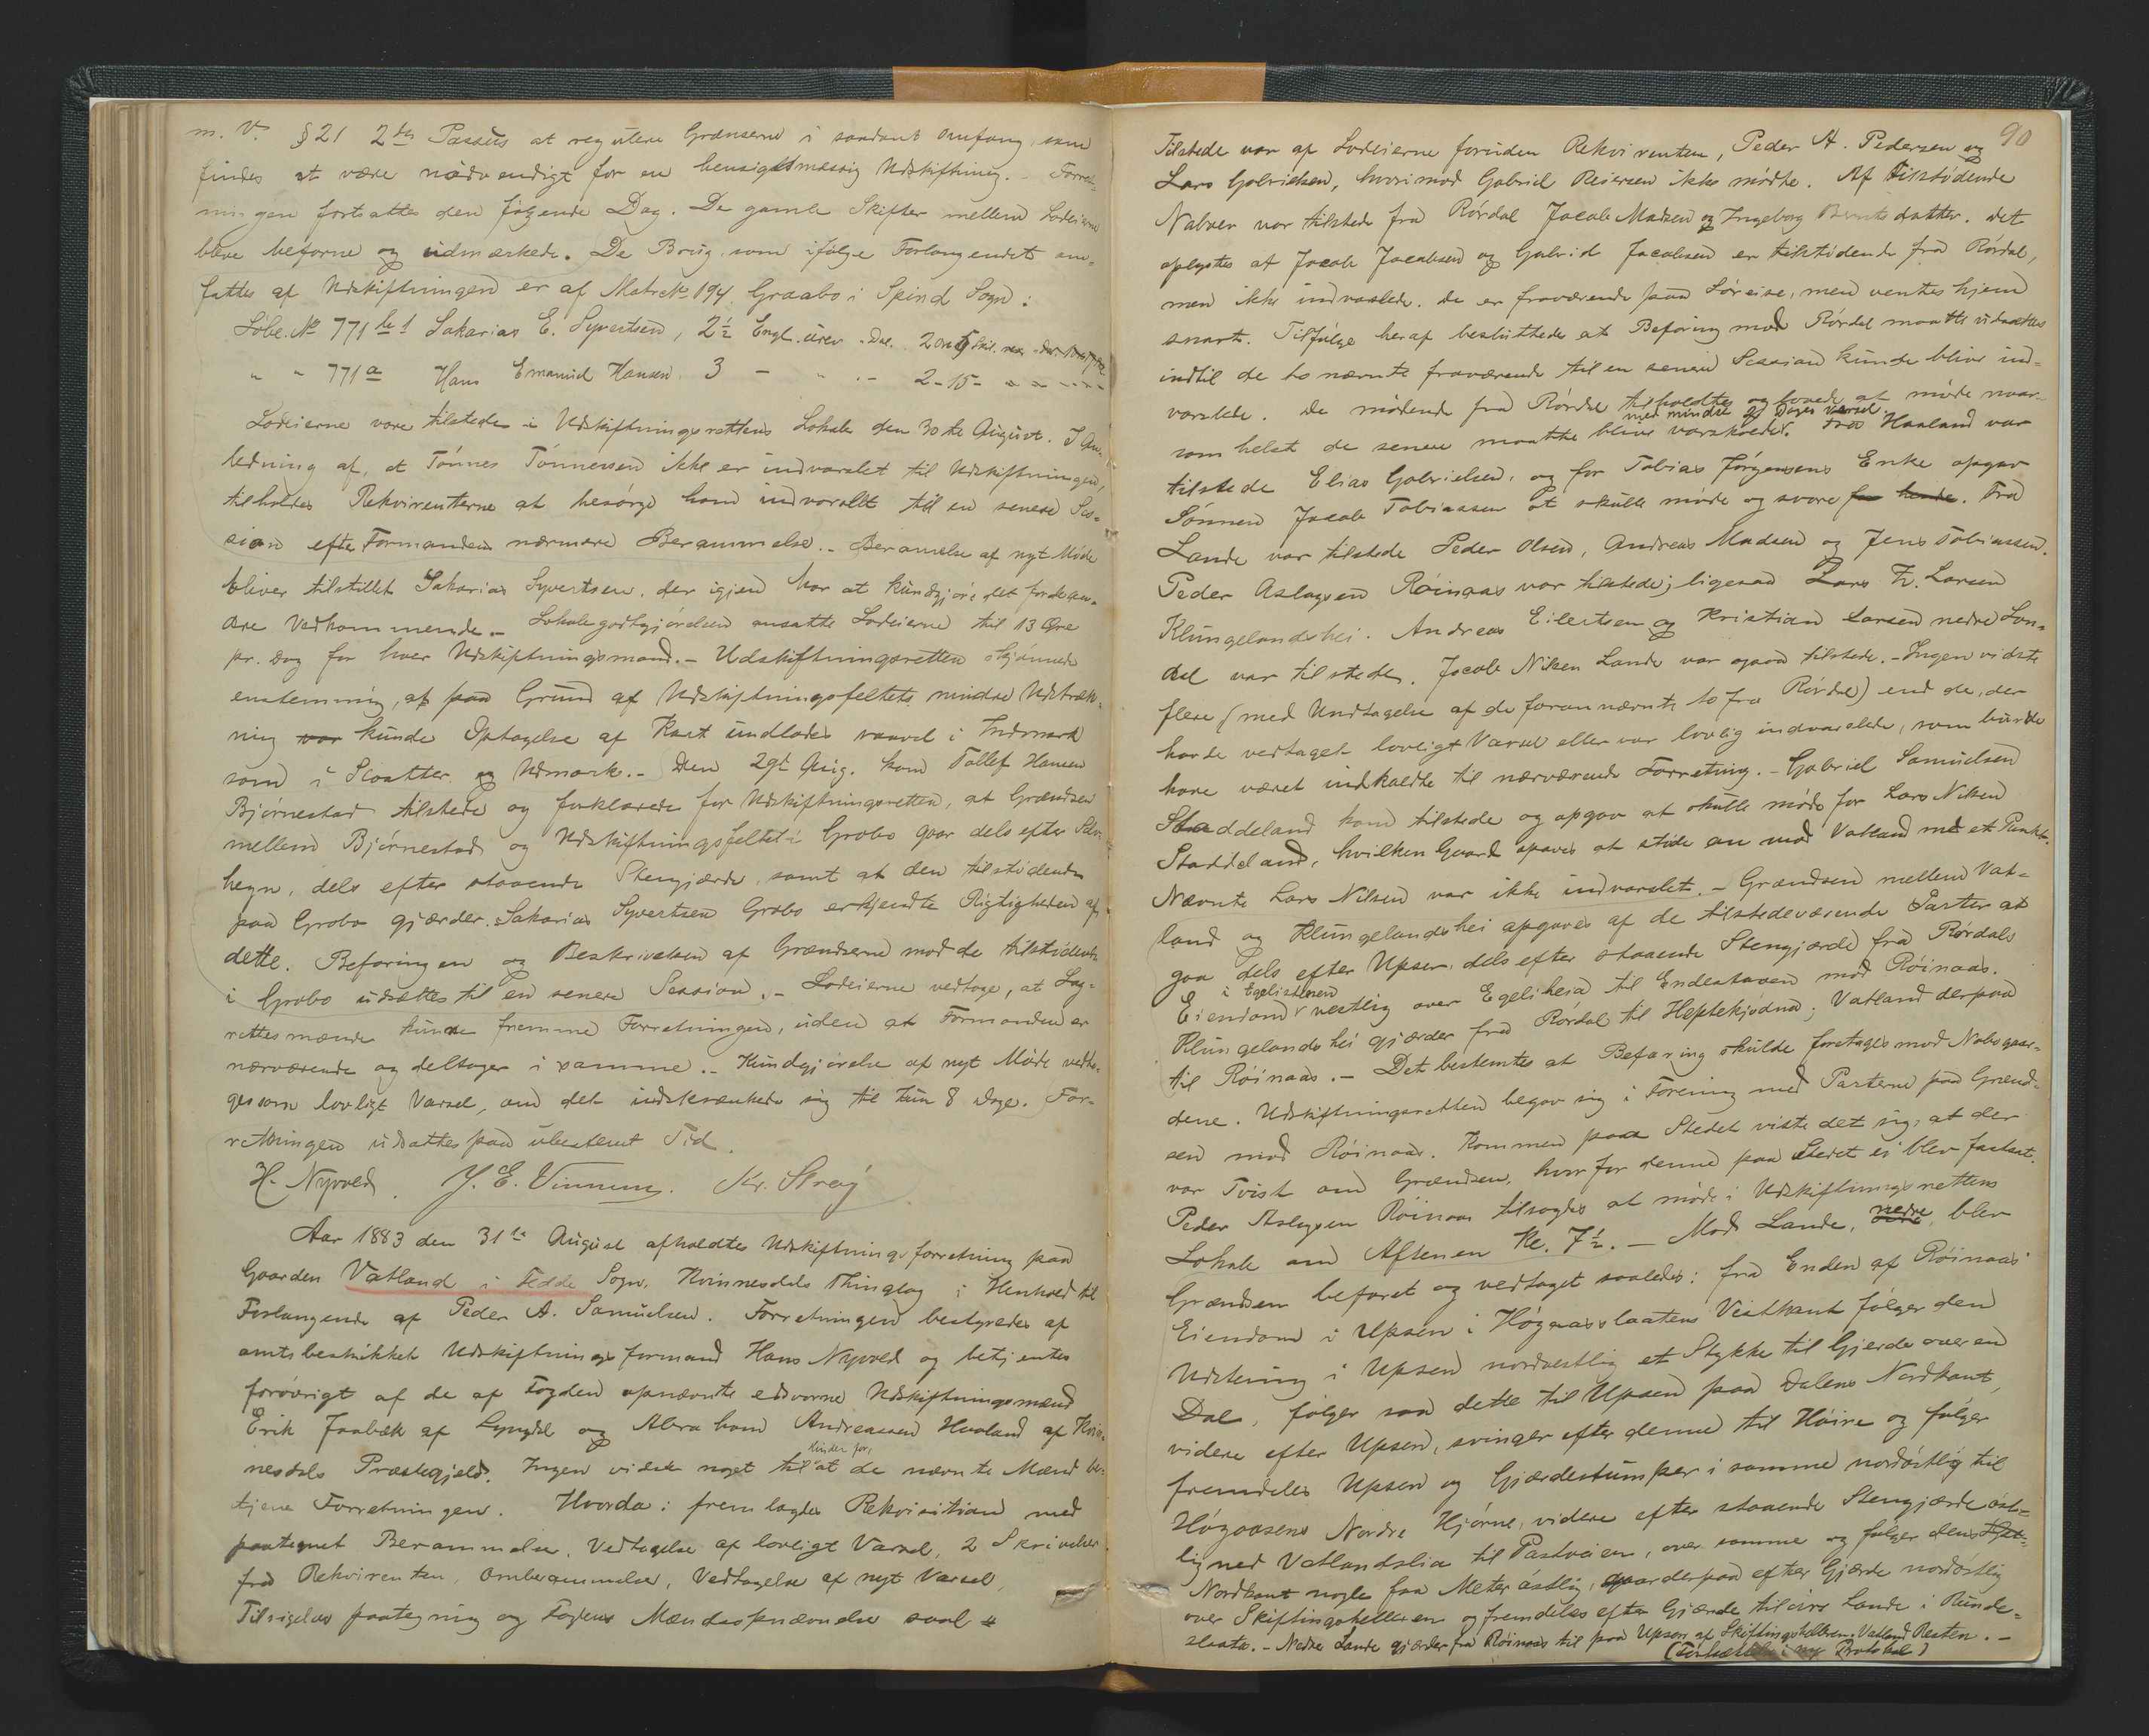 m. V. § 21 2den Passus at regulere Grænserne i saadant Omfang, som
findes at være nødvendigt for en hensigtsmæssig Udskiftning. - Forret-
ningen fortsattes den følgende Dag. De gamle Skifter mellem Lodeierne
bleve befarne og udmærkede. De Brug, som ifølge Forlangendet om-
fattes af Udskiftningen er af Matr. No 194 Graabo i Spind Sogn:
Løbe No 771 b1 Sakarias E. Syvertsen, 2½ Engl. urev. Dal. 2 ort 5 Skil.
" " 771 a Hans Emanuel Hansen 3 - " - 2 - 15 -
Lodeierne vare tilstede i Udskiftningsrettens Lokale den 30te August. I An-
ledning af, at Tønnes Tønnessen ikke er indvarslet til Udskiftningen,
tilholdes Rekvirenterne at besørge ham indvarslet til en senere Ses-
sion efter Formandens nærmere Berammelse. - Beramelse af nyt Møde
bliver tilstillet Sakarias Syvertsen, der igjen har at kundgjøre det for de an-
dre Vedkommende. - Lokalegodtgjørelsen ansatte Lodeierne til 13 Øre
pr. Dag for hver Udskiftningsmand. - Udskiftningsretten skjønnede
enstemmig, at paa Grund af Udskiftningsfeltets mindre Udstræk-
ning var kunde Optagelse af Kart undlades saavel i Indmark
som i Slaatter og Udmark. - Den 29de Aug. kom Tollef Hansen
Bjørnestad tilstede og forklarede for Udskiftningsretten, at Grændsen
mellem Bjørnestad og Udskiftningsfeltet i Grobo gaar dels efter Selv-
hegn, dels efter staaende Stengjærde, samt at den tilstødende
paa Grobo gjærder. Sakarias Syvertsen Grobo erkjendte Rigtigheden af
dette. Befaringen og Beskrivelsen af Grændserne mod de tilstødende
i Grobo udsættes til en senere Session. - Lodeierne vedtoge, at Lag-
rettesmænde kunne fremme Forretningen, uden at Formanden er
nærværende og deltager i samme. - Kundgjørelse af nyt Møde vedta-
ges som lovligt Varsel, om det indskrænkede sig til kun 8 Dage. For-
retningen udsattes paa ubestemt Tid.
H. Nyvold. J. E. Vinnem. Kr. Strøy
Aar 1883 den 31te August afholdtes Udskiftningsforretning paa
Gaarden Vatland i Fedde Sogn, Kvinnesdals Thinglag i Henhold til
Forlangende af Peder A. Samuelsen. Forretningen bestyredes af
amtsbeskikket Udskiftningsformand Hans Nyvold og betjentes
forøvrigt af de af Fogden opnævnte edsvorne Udskiftningsmænd
Erik Faabæk af Lyngdal og Abraham Andreassen Haaland af Kvin-
nesdals Præstegjeld. Ingen vidste noget til Hinder for, at de nævnte Mænd be-
tjene Forretningen. Hvorda: fremlagdes Rekvisition med
paategnet Berammelse, Vedtagelse af lovligt Varsel, 2 Skrivelser
fra Rekvirenten, Omberammelse, Vedtagelse af nyt Varsel,
Tilsigelses paategning og Fogdens Mændsopnævnelse saal
90
Tilstede var af Lodeierne foruden Rekvirenten, Peder A. Pedersen og
Lars Gabrielsen, hvorimod Gabriel Reiersen ikke mødte. Af tilstødende
Naboer var tilstede fra Rørdal Jacob Madsen og Ingeborg Berntsdatter. Det
oplystes at Jacob Jacobsen og Gabriel Jacobsen er tilstødende fra Rørdal,
men ikke indvarslede. De er fraværende paa Søreise, men ventes hjem
snart. Tilfølge heraf besluttedes at Befaring mod Rørdal maatte udsættes
indtil de to nævnte fraværende til en senere Session kunde blive ind-
varslede. De mødende fra Rørdal tilholdtes og lovede at møde naar-
somhelst de senere maatte blive varskoede med mindre af Dages Varsel. Fra Haaland var
tilstede Elias Gabrielsen, og for Tobias Jørgensens Enke opgav
Sønnen Jacob Tobiassen at skulle møde og svare for hende. Fra
Lande var tilstede Peder Olsen, Andreas Madsen og Jens Tobiassen.
Peder Aslagsen Røinaas var tilstede, ligesaa Lars Th. Larsen
Klungelandshei. Andreas Eilertsen og Kristian Larsen nedre Lon-
dal var tilstede. Jacob Nilsen Lande var ogsaa tilstede. - Ingen vidste
flere (med Undtagelse af de forannævnte to fra Rørdal) end de, der
havde vedtaget lovligt Varsel eller var lovlig indvarslede, som burde
have været indkaldte til nærværende Forretning. - Gabriel Samuelsen
Staddeland kom tilstede og opgav at skulle møde for Lars Nilsen
Staddeland, hvilken Gaard opgaves at støde an mod Vatland med et Punkt.
Nævnte Lars Nilsen var ikke indvarslet. - Grændsen mellem Vat-
land og Klungelandshei opgaves af de tilstedeværende Parter at
gaa dels efter Upser, dels efter staaende Stengjærde fra Rørdals
Eiendom i Egelistenen vestlig over Egeliheia til Endestaven mod Røinaas.
Klungelandshei gjærder fra Rørdal til Heptekjødna; Vatland derpaa
til Røinaas. - Det bestemtes at Befaring skulde foretages mod Nabogaar-
dene. Udskiftningsretten begav sig i Forening med Parterne paa Grænd-
sen mod Røinaas. Kommen paa Stedet viste det sig, at der
var Tvist om Grændsen, hvorfor denne paa Stedet ei blev fastsat.
Peder Aslagsen Røinaas tilsagdes at møde i Udskiftningsrettens
Lokale om Aftenen Kl. 7½. - Mod Lande, nedre, blev
Grændsen befaret og vedtaget saaledes: fra Enden af Røinaas'
Eiendom i Upsen i Høgaasslaatens Vestkant følger den
Udstening i Upsen nordvestlig et Stykke til Gjerde over en
Dal, følger saa dette til Upsen paa Dalens Nordkant,
videre efter Upsen, svinger efter denne til Høire og følger
fremdeles Upsen og Gjærdestumper i samme nordøstlig til
Høgaasens Nordre Hjørne, videre efter staaende Stengjærde øst-
lig ned Vatlandslia til Postveien, over samme og følger dens
Nordkant nogle faa Meter østlig, gaar derpaa efter Gjærde nordostlig
over Skiftingshelleren og fremdeles efter Gjærde til øvre Lande i Runde-
slaata. - Nedre Lande gjærder fra Røinaas til paa Upsen af Skiftingshelleren. Vatland Resten. -
(Fortsættes i ny Protokol)